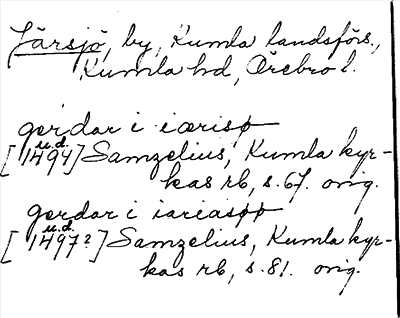 Järsjö, by, Kumla landsförs.,
Kumla hd, Örebro l.
gerdar i iærisø
u.d.
[1494] Samzelius, Kumla kyr-
kas rb, s. 67. orig.
gerdar i iariasøø
u.d.
[1497?] Samzelius, Kumla kyr-
kas rb, s. 81. orig.